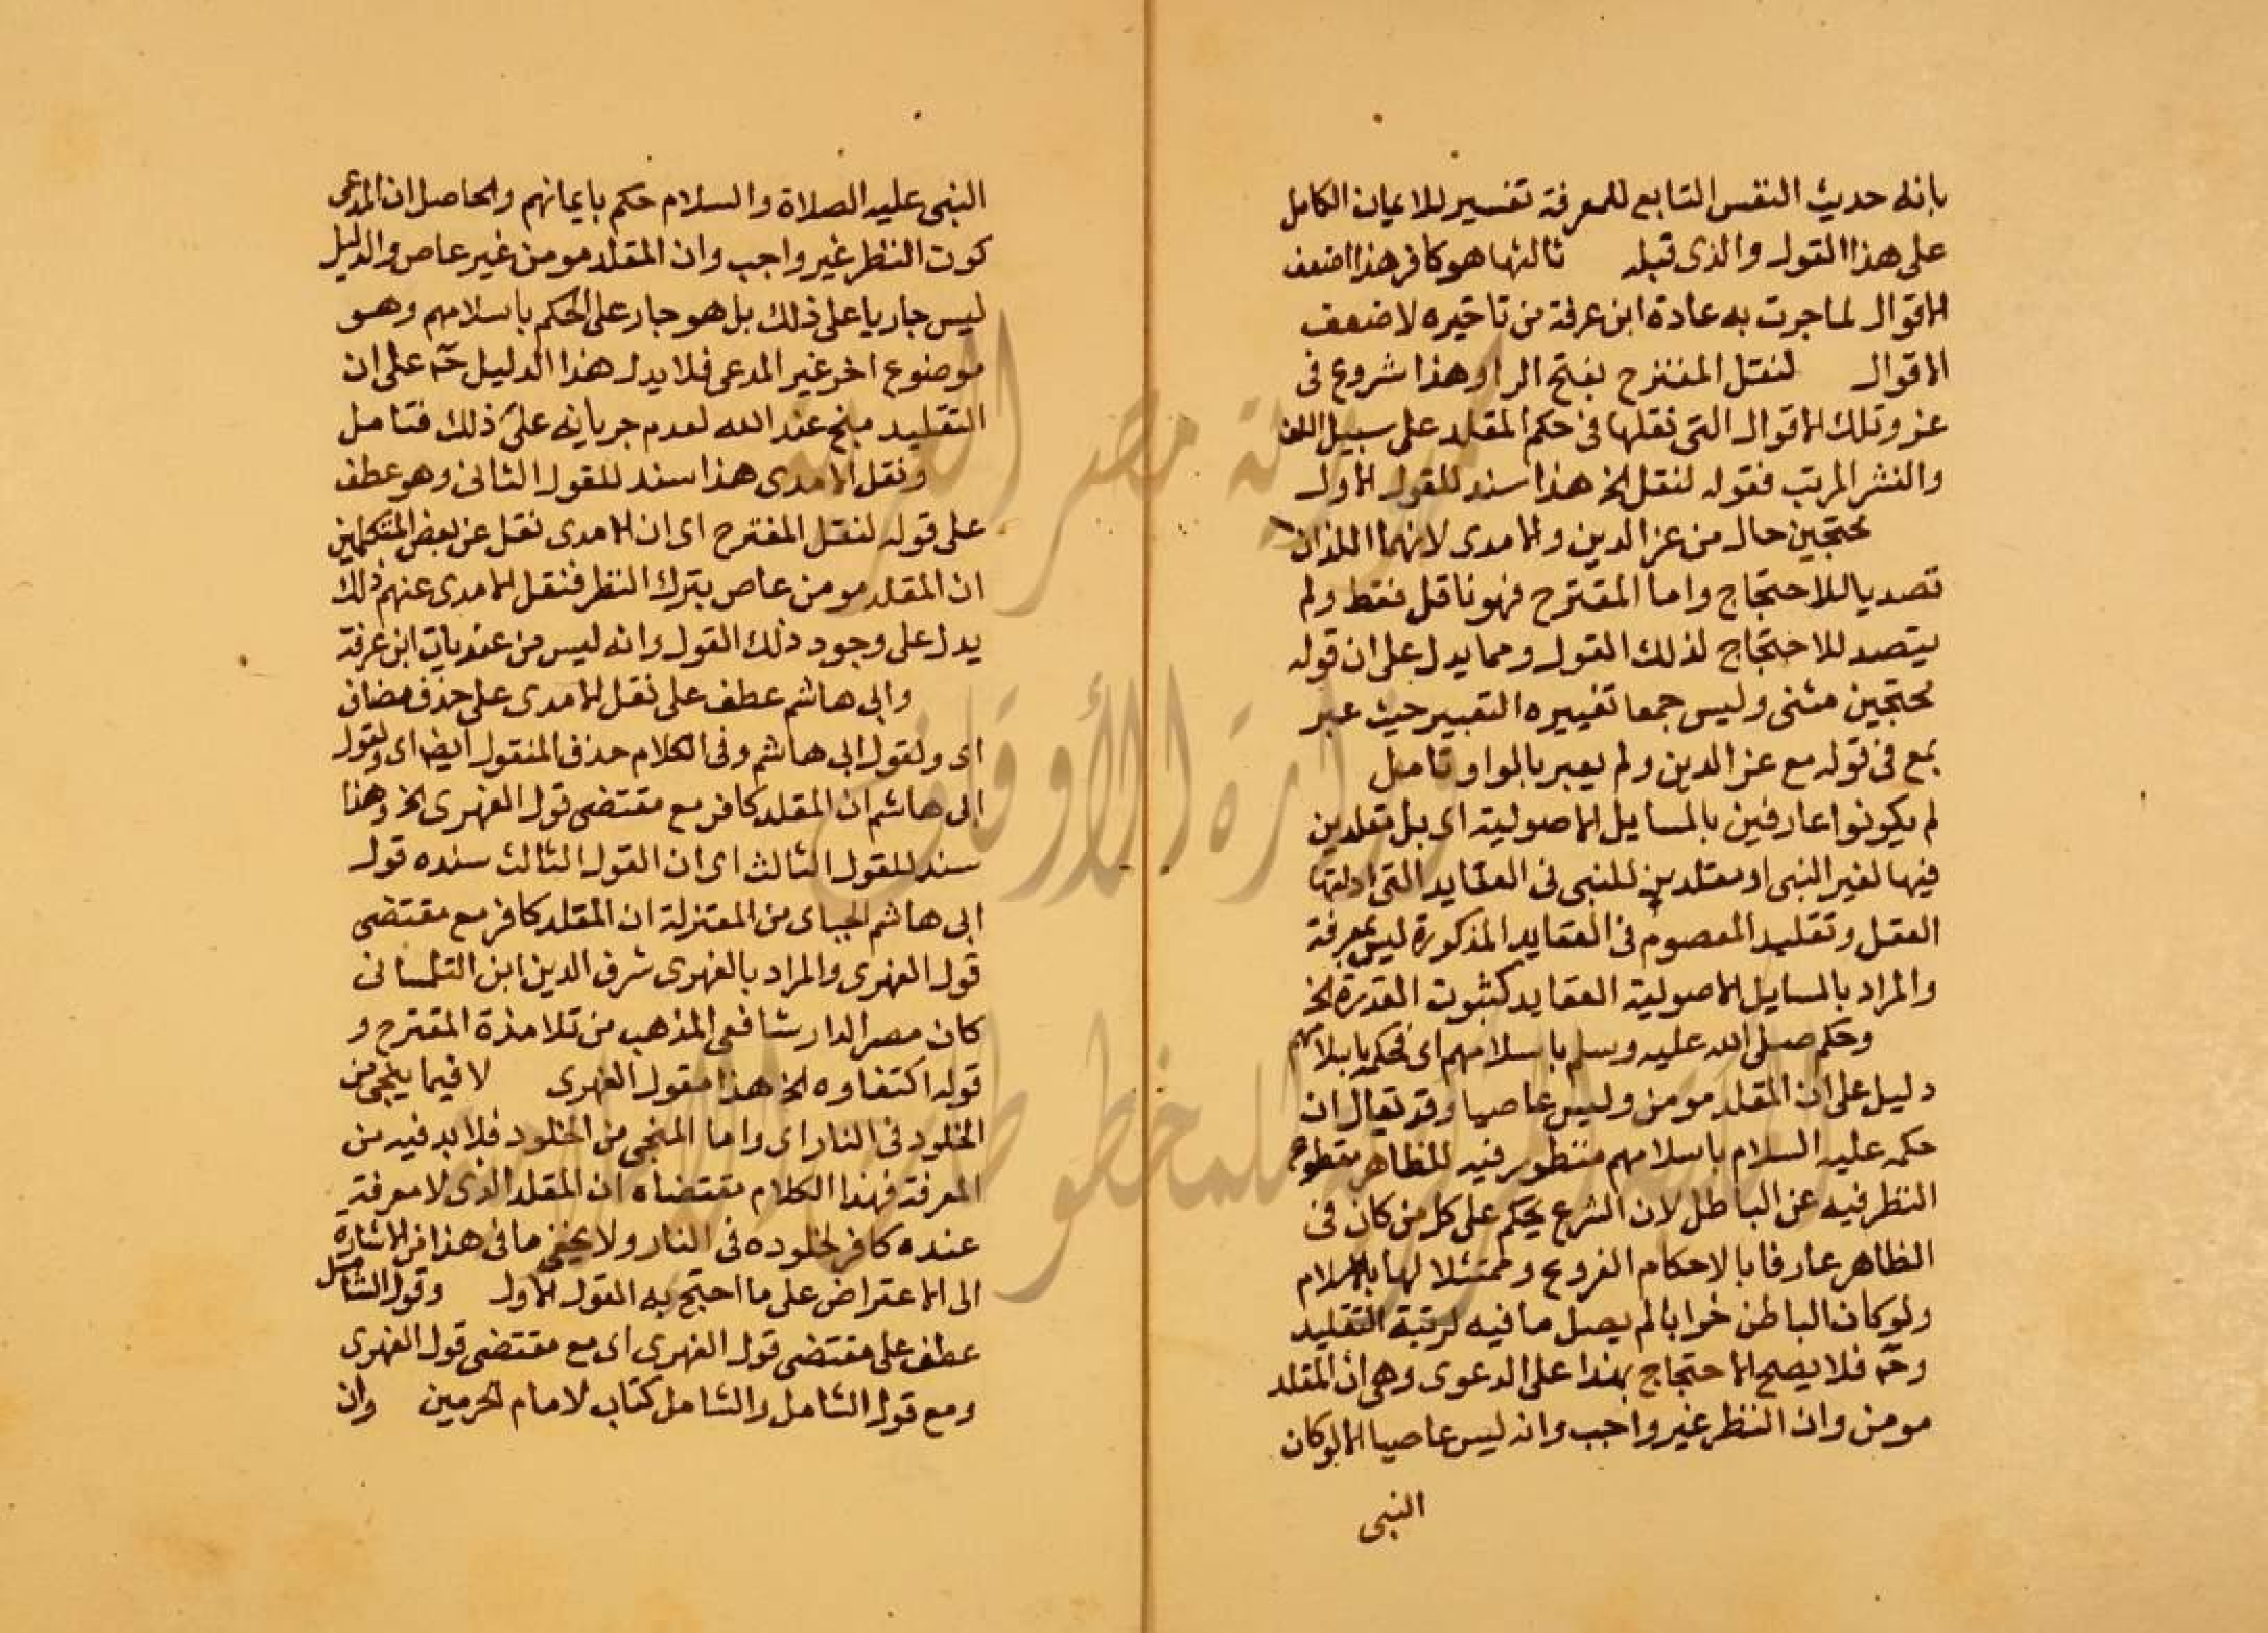 بانه حديث النفس التابع للمعرفة تفسير للايمان الكامل
على هذا القول والذى قبله ثالثها هو كافر هذا اضعف
الاقوال لما جرت به عادة ابن عرفة من تاخيره لاضعف
الاقوال لنقل المقترح بفتح الرا وهذا شروع فى
عزو تلك الاقوال التى نقلها فى حكم المقلد على سبيل اللف
والنشر المرتب فقوله لنقل الخ هذا سند للقول الاول
محتجين حال من عز الدين والامدى لانهما اللذان
تصديا للاحتجاج واما المقترح فهو ناقل فقط ولم
يتصد للاحتجاج لذلك القول ومما يدل على ان قوله
محتجين مثنى وليس جمعا تغييره التعبير حيث عبر
بمع فى قوله مع عز الدين ولم يعبر بالواو تامل
لم يكونوا عارفين بالمسايل الاصولية اى بل مقلدين
فيها لغير النبى او مقلدين للنبى فى العقايد التى دلتها
العقل وتقليد المعصوم فى العقايد المذكورة ليس بمعرفة
والمراد بالمسايل الاصولية العقايد كثبوت القدرة الخ
وحكم صلى الله عليه وسلم باسلامهم اى فحكمه باسلامهم
دليل على ان المقلد مومن وليس عاصيا وقد يقال ان
حكمه عليه السلام باسلامهم منظور فيه للظاهر مقطوع
النظر فيه عن الباطل لان الشرع يحكم على كل من كان فى
الظاهر عارفا بالاحكام الفروع وممتثلا لها بالاسلام
ولو كان الباطن خرابا لم يصل ما فيه لرتبة التقليد
وحـ فلا يصح الاحتجاج بهذا على الدعوى وهى ان المقلد
مومن وان النظر غير واجب وانه ليس عاصيا الا لو كان
النبى
النبى عليه الصلاة والسلام حكم بايمانهم والحاصل ان المدعى
كون النظر غير واجب وان المقلد مومن غير عاص والدليل
ليس جاريا على ذلك بل هو جار على الحكم باسلامهم وهو
موضوع اخر غير المدعى فلا يدل هذا الدليل حـ على ان
التقليد منج عند الله لعدم جريانه على ذلك فتامل
ونقل الامدى هذا سند للقول الثانى وهو عطف
على قوله لنقل المقترح اى ان الامدى نقل عن بعض المتكلمين
ان المقلد مومن عاص بترك النظر فنقل الامدى عنهم ذلك
يدل على وجود ذلك القول وانه ليس من عنديات ابن عرفة
وابى هاشم عطف على نقل الامدى على حذف مضاف
اى ولقول ابى هاشم وفى الكلام حذف المنقول ايضا اى ولقول
ابى هاشم ان المقلد كافر مع مقتضى قول الفهرى الخ وهذا
سند للقول الثالث اى ان القول الثالث سنده قول
ابى هاشم الجباى من المعتزلة ان المقلد كافر مع مقتضى
قول الفهرى والمراد بالفهرى شرف الدين ابن التلمسانى
كان مصر الدار شافعى المذهب من تلامذة المقترح و
قوله اكتفاوه الخ هذا مقول الفهرى لا فيما ينجى من
الخلود فى النار اى واما المنجى من الخلود فلا بد فيه من
المعرفة فهذا الكلام مقتضاه ان المقلد الذى لا معرفة
عنده كافر لخلوده فى النار ولا يخفى ما فى هذا من الاشارة
الى الاعتراض على ما احتج به القول الاول وقول الشامل
عطف على مقتضى قول الفهرى اى مع مقتضى قول الفهرى
ومع قول الشامل والشامل كتاب لامام الحرمين وان